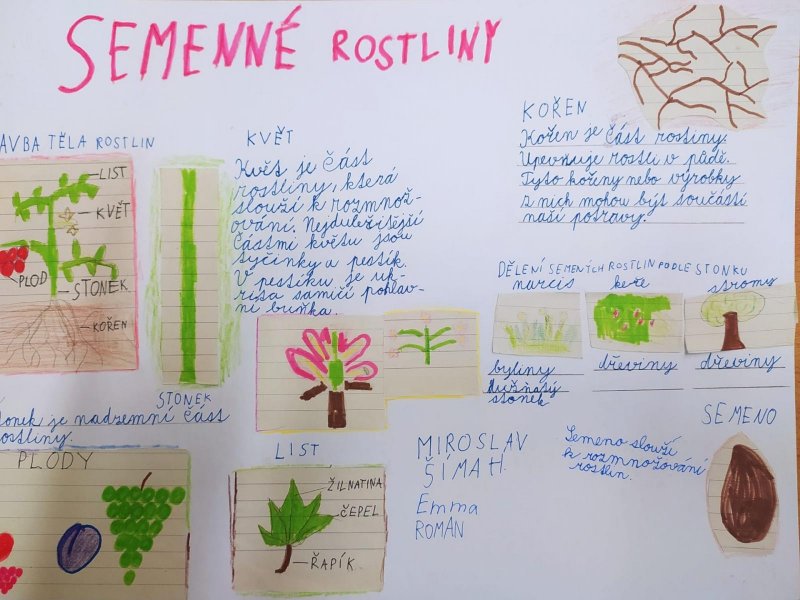 SEMENNÉ ROSTLINY
AVBA TĚLA ROSTLIN
LIST
KVĚT
PLOD
STONEK
KOŘEN
STONEK
onek je nadzemní část
ostliny.
PLODY
KVĚT
Květ je část
rostliny, která
slouží k rozmnož-
ování. Nejduležitější
částmi květu jsou
tyčinky a pestík.
V pestíku je uk-
rita samičí pohlav-
ní buňka.
LIST
ŽILNATINA
ČEPEL
ŘAPÍK
KOŘEN
Kořen je část rostiny.
Upevňuje rostli v půdě.
Tyto kořiny nebo výrobky
z nich mohou být součástí
naší potravy.
DĚLENÍ SEMENÝCH ROSTLIN PODLE STONKU
narcis keře stromy
byliny dřeviny dřeviny
dužnatý
stonek
MIROSLAV
ŠIMAH.
Emma
ROMAN
SEMENO
Semeno slouží
k rozmnožování
rostlin.